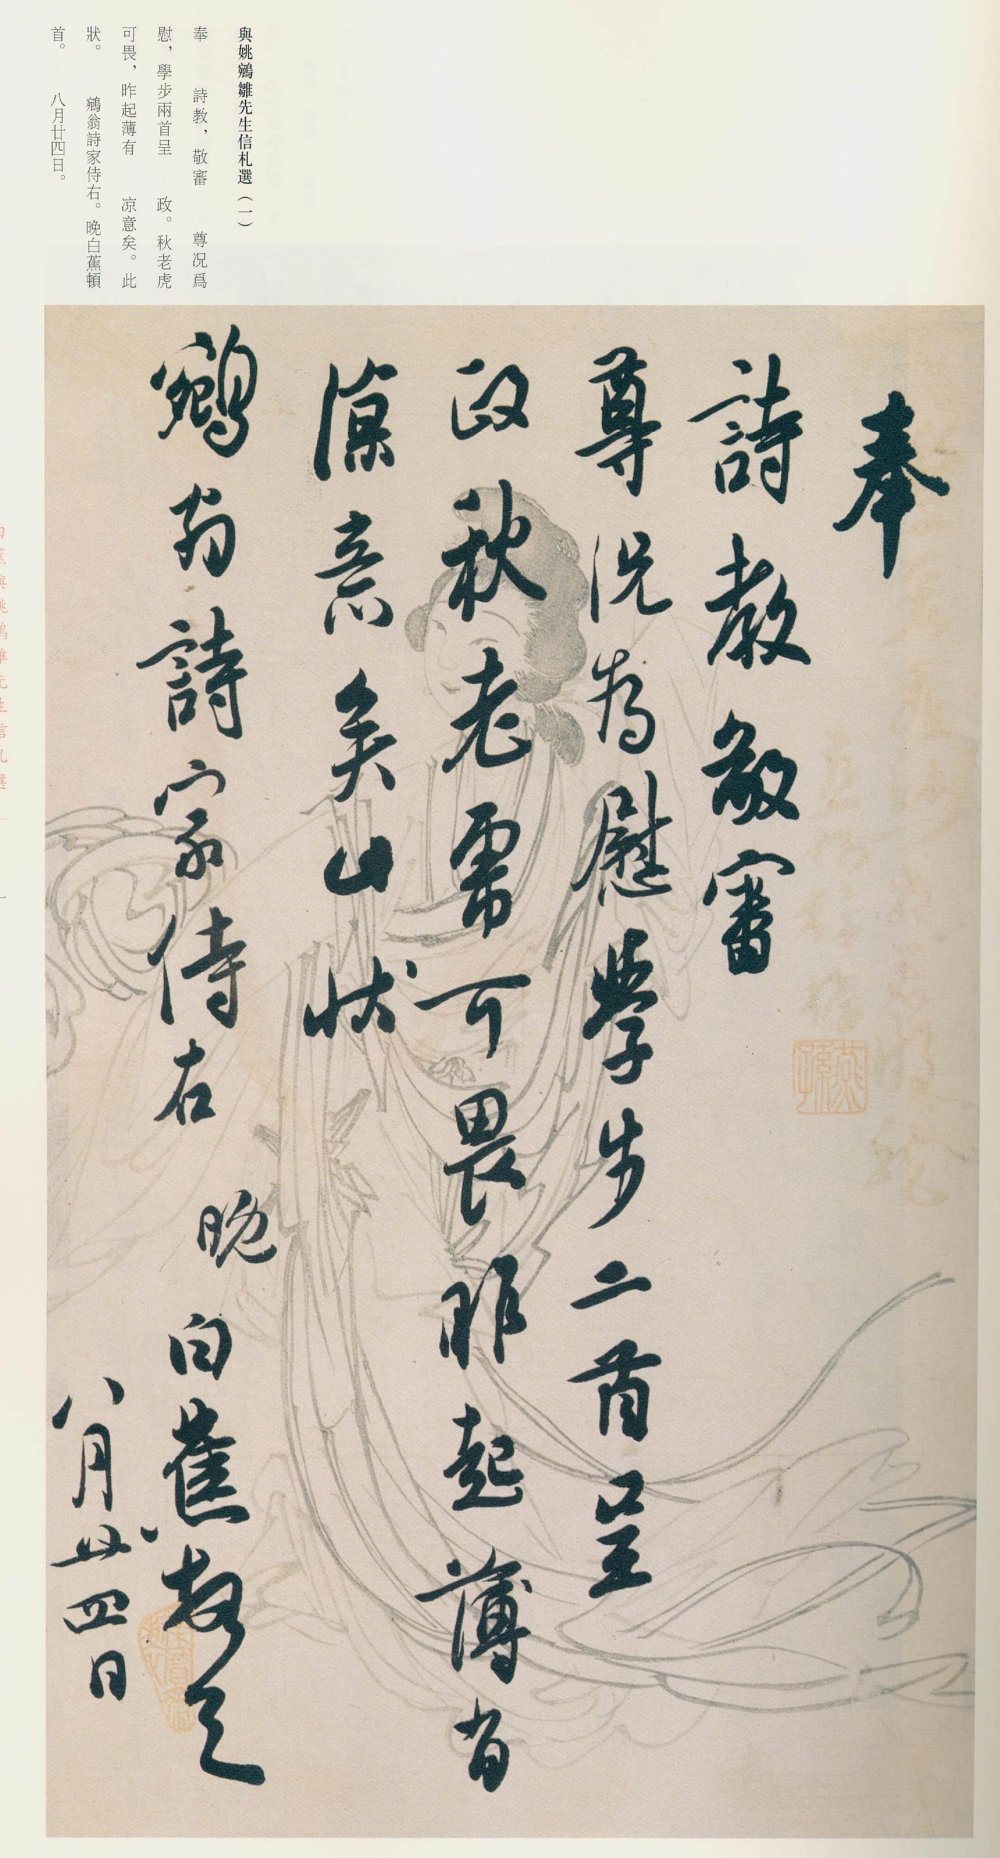 與姚鵷雛先生信札選（一）
奉　詩教，敬審　尊況爲
慰，學步兩首呈　政。秋老虎
可畏，昨起薄有　涼意矣。此
狀。　鵷翁詩家侍右。晚白蕉頓
首。　八月廿四日。
奉
詩教敬審
尊況為慰學步二首呈
政秋老虎可畏昨起薄有
涼意矣此狀
鵷翁詩家侍右
晚白蕉頓首
八月廿四日
白蕉與姚鵷雛先生信札選